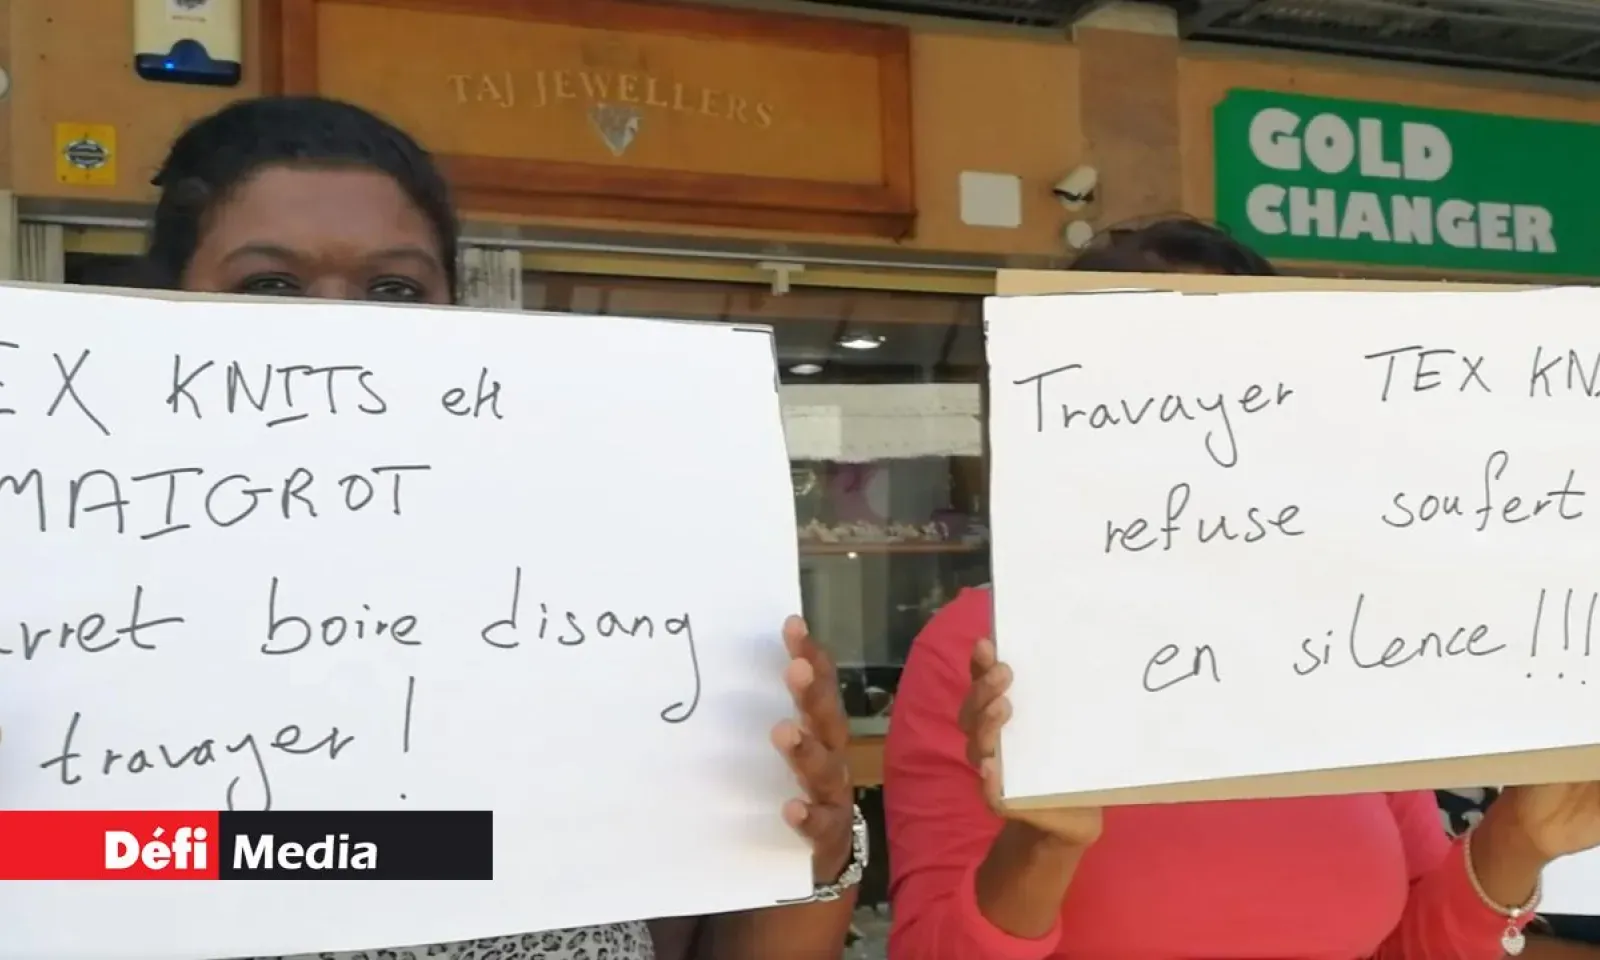 TAJ JEWELLERS
GOLD
CHANGER
EX KNITS ek
MAIGROT
arret boire disang
travayer!
Travayer TEX KN
refuse soufert
en silence!!!
Défi Media